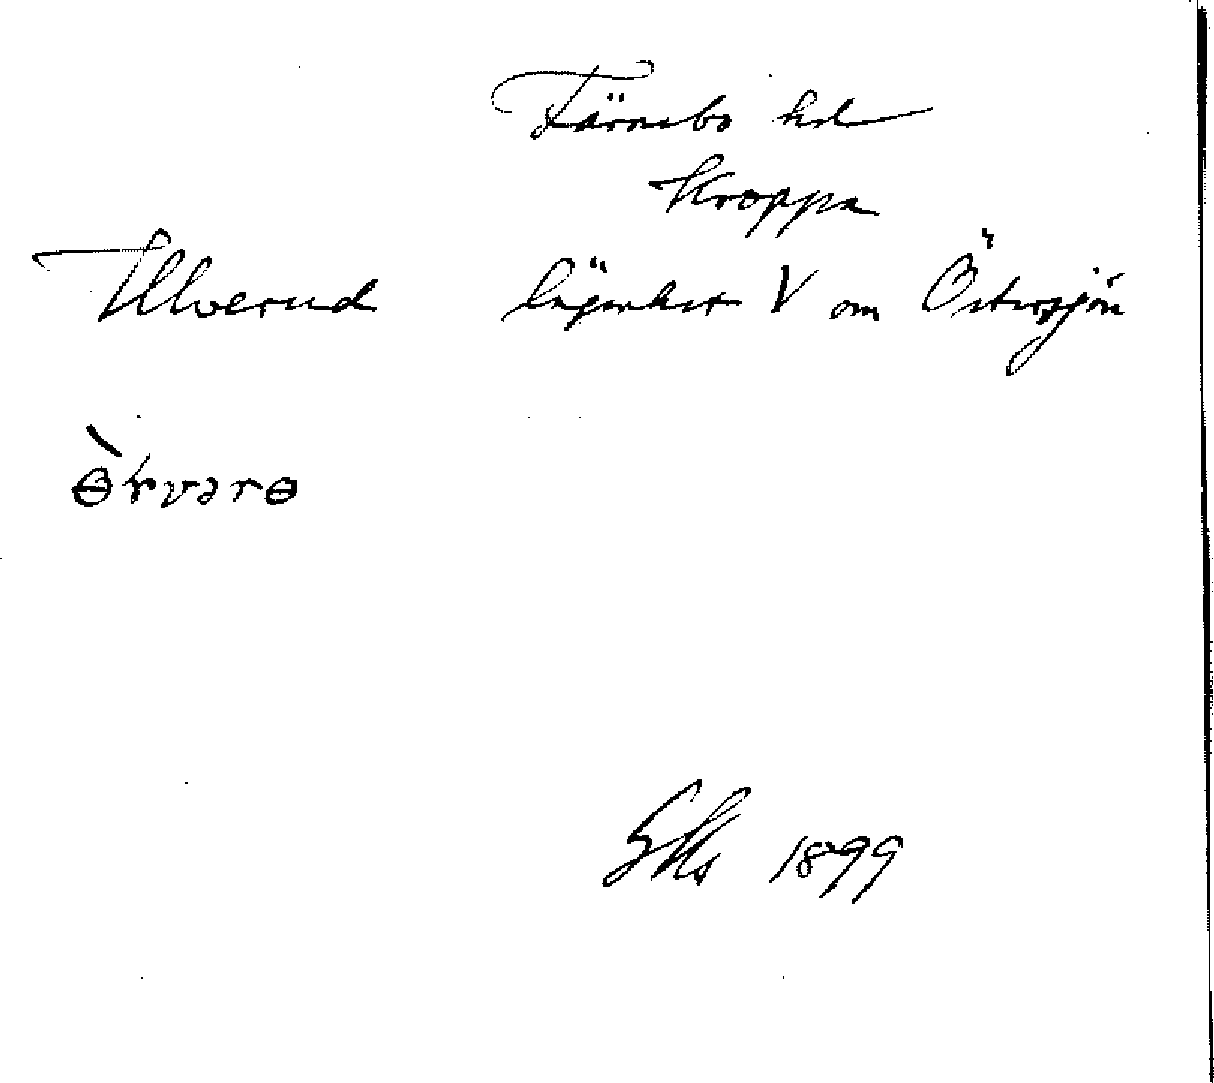 Färnebo hd
Kroppa
Ulverud lägenhet V om Östersjön
1899